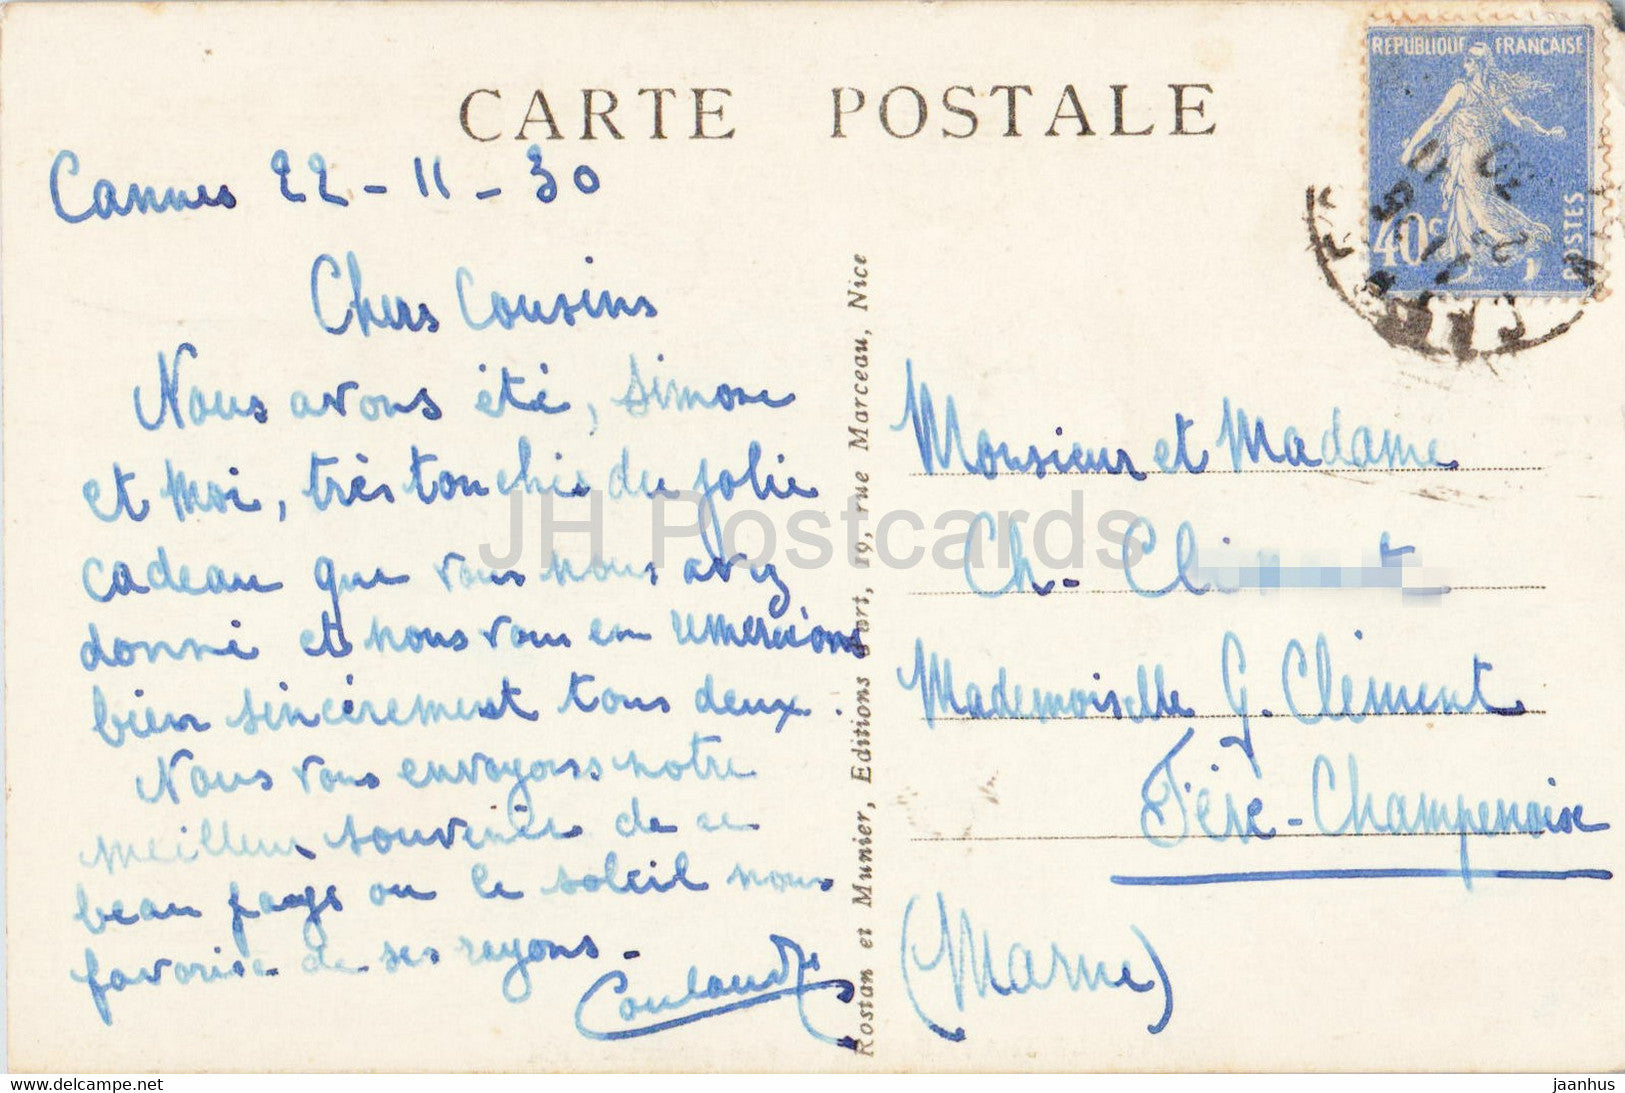 CARTE POSTALE
REPUBLIQUE FRANÇAISE
40c
POSTES
Cannes 22-11-30
Chers Cousins
Nous avons été, Simone
et Moi, très touchés du jolie
cadeau que vous nous avez
donné et nous vous en remercions
bien sincèrement tous deux.
Nous vous envoyons notre
meilleur souvenir de ce
beau pays ou le soleil nous
favorise de ses rayons.
Rostan et Munier, Editions d'art, 19, rue Marceau, Nice
Monsieur et Madame
Ch-
Mademoiselle G. Clément
Fère-Champenoise
(Marne)
JH Postcards
delcampe.net
jaanhus